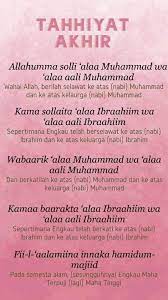 TAHHIYAT
AKHIR
Allahumma solli 'alaa Muhammad wa
'alaa aali Muhammad
Wahai Allah, berilah selawat ke atas (nabi) Muhammad
dan ke atas keluarga (nabi) Muhammad
Kama sollaita 'alaa Ibraahiim wa
'alaa aali Ibraahiim
Sepertimana Engkau telah berselawat ke atas (nabi)
Ibrahim dan ke atas keluarga (nabi) Ibrahim
Wabaarik 'alaa Muhammad wa 'alaa
aali Muhammad
Dan berkatilan ke atas (nabi) Muhammad dan ke atas
keluarga (nabi) Muhammad
Kamaa baarakta 'alaa Ibraahiim wa
'alaa aali Ibraahiim
Sepertimana Engkau telah berkati ke atas (nabi)
Ibrahim dan ke atas keluarga (nabi) Ibrahim
Fii-l-'aalamiina innaka hamidum-
majiid
Pada semesta alam, (sesungguhnya) Engkau Maha
Terpuji (lagi) Maha Tinggi